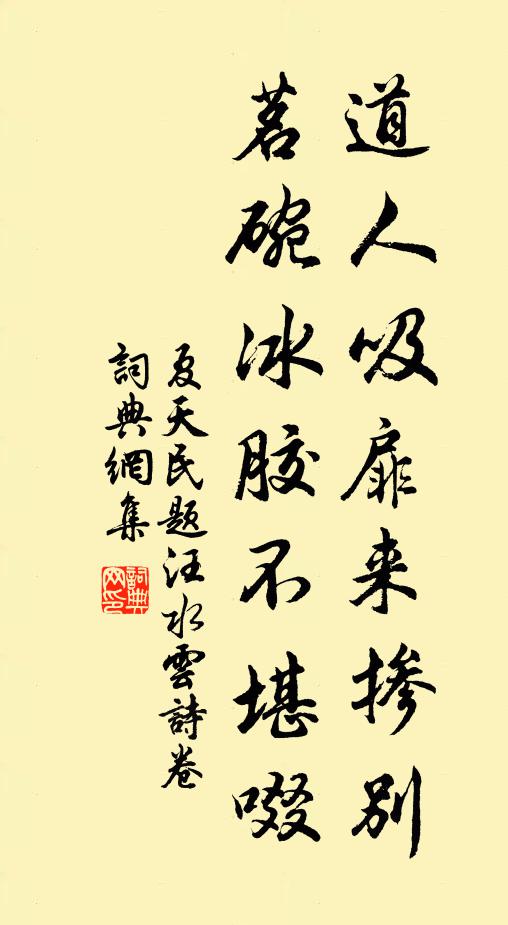 道人吸扉来掺别
茗碗冰胶不堪啜
夏天民题汪水雲詩卷
詞典網集
詞典网印